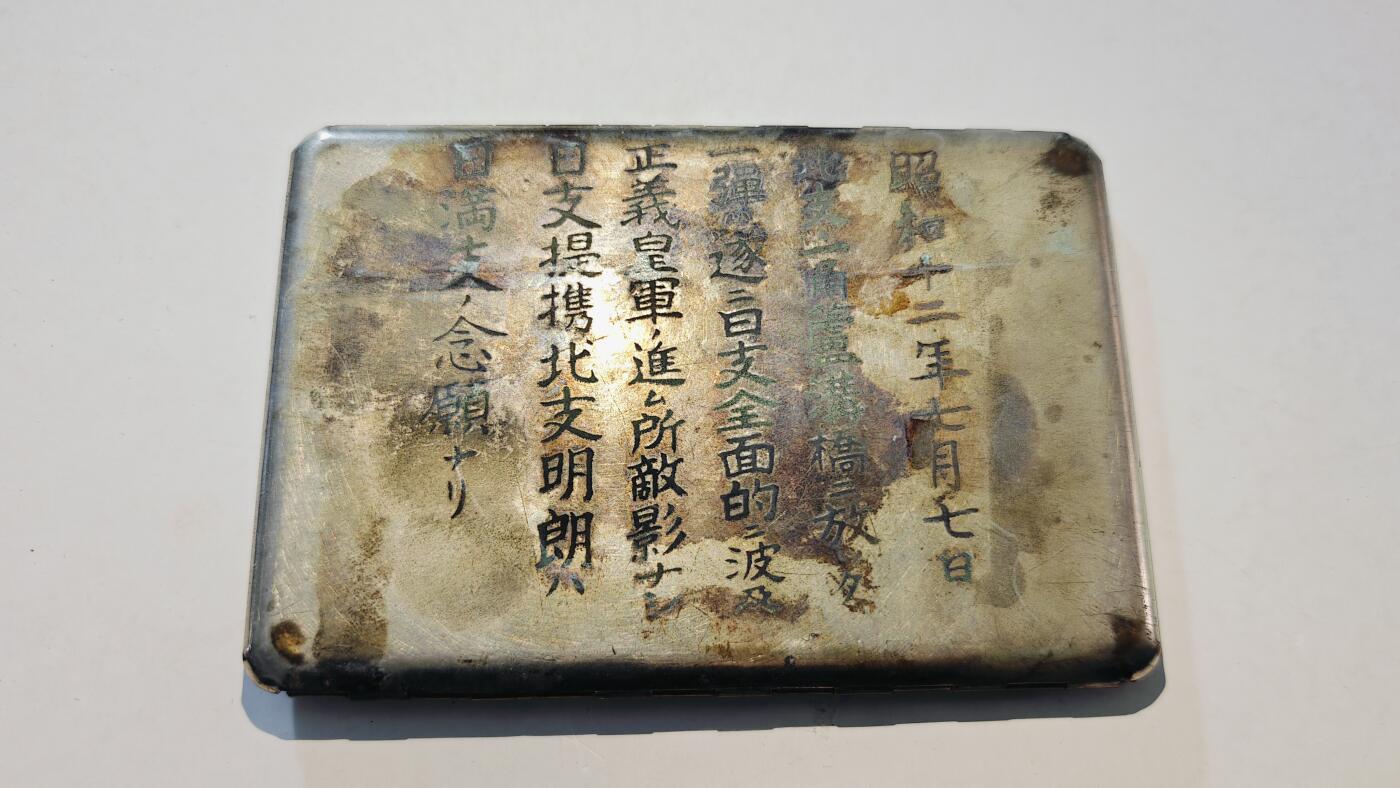 昭和十二年七月七日
北支一角蘆溝橋ニ放シタ
一彈遂ニ日支全面的ニ波及
正義皇軍ノ進ム所敵影ナシ
日支提携北支明朗ハ
日満支人ノ念願ナリ